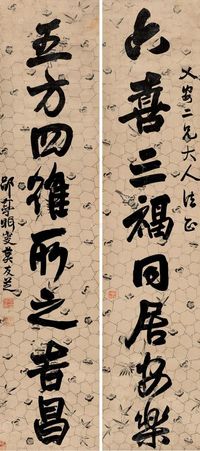 安二兄大人法正
六喜三福同居安樂
五方四維所之吉昌
郘亭眲叟莫友芝